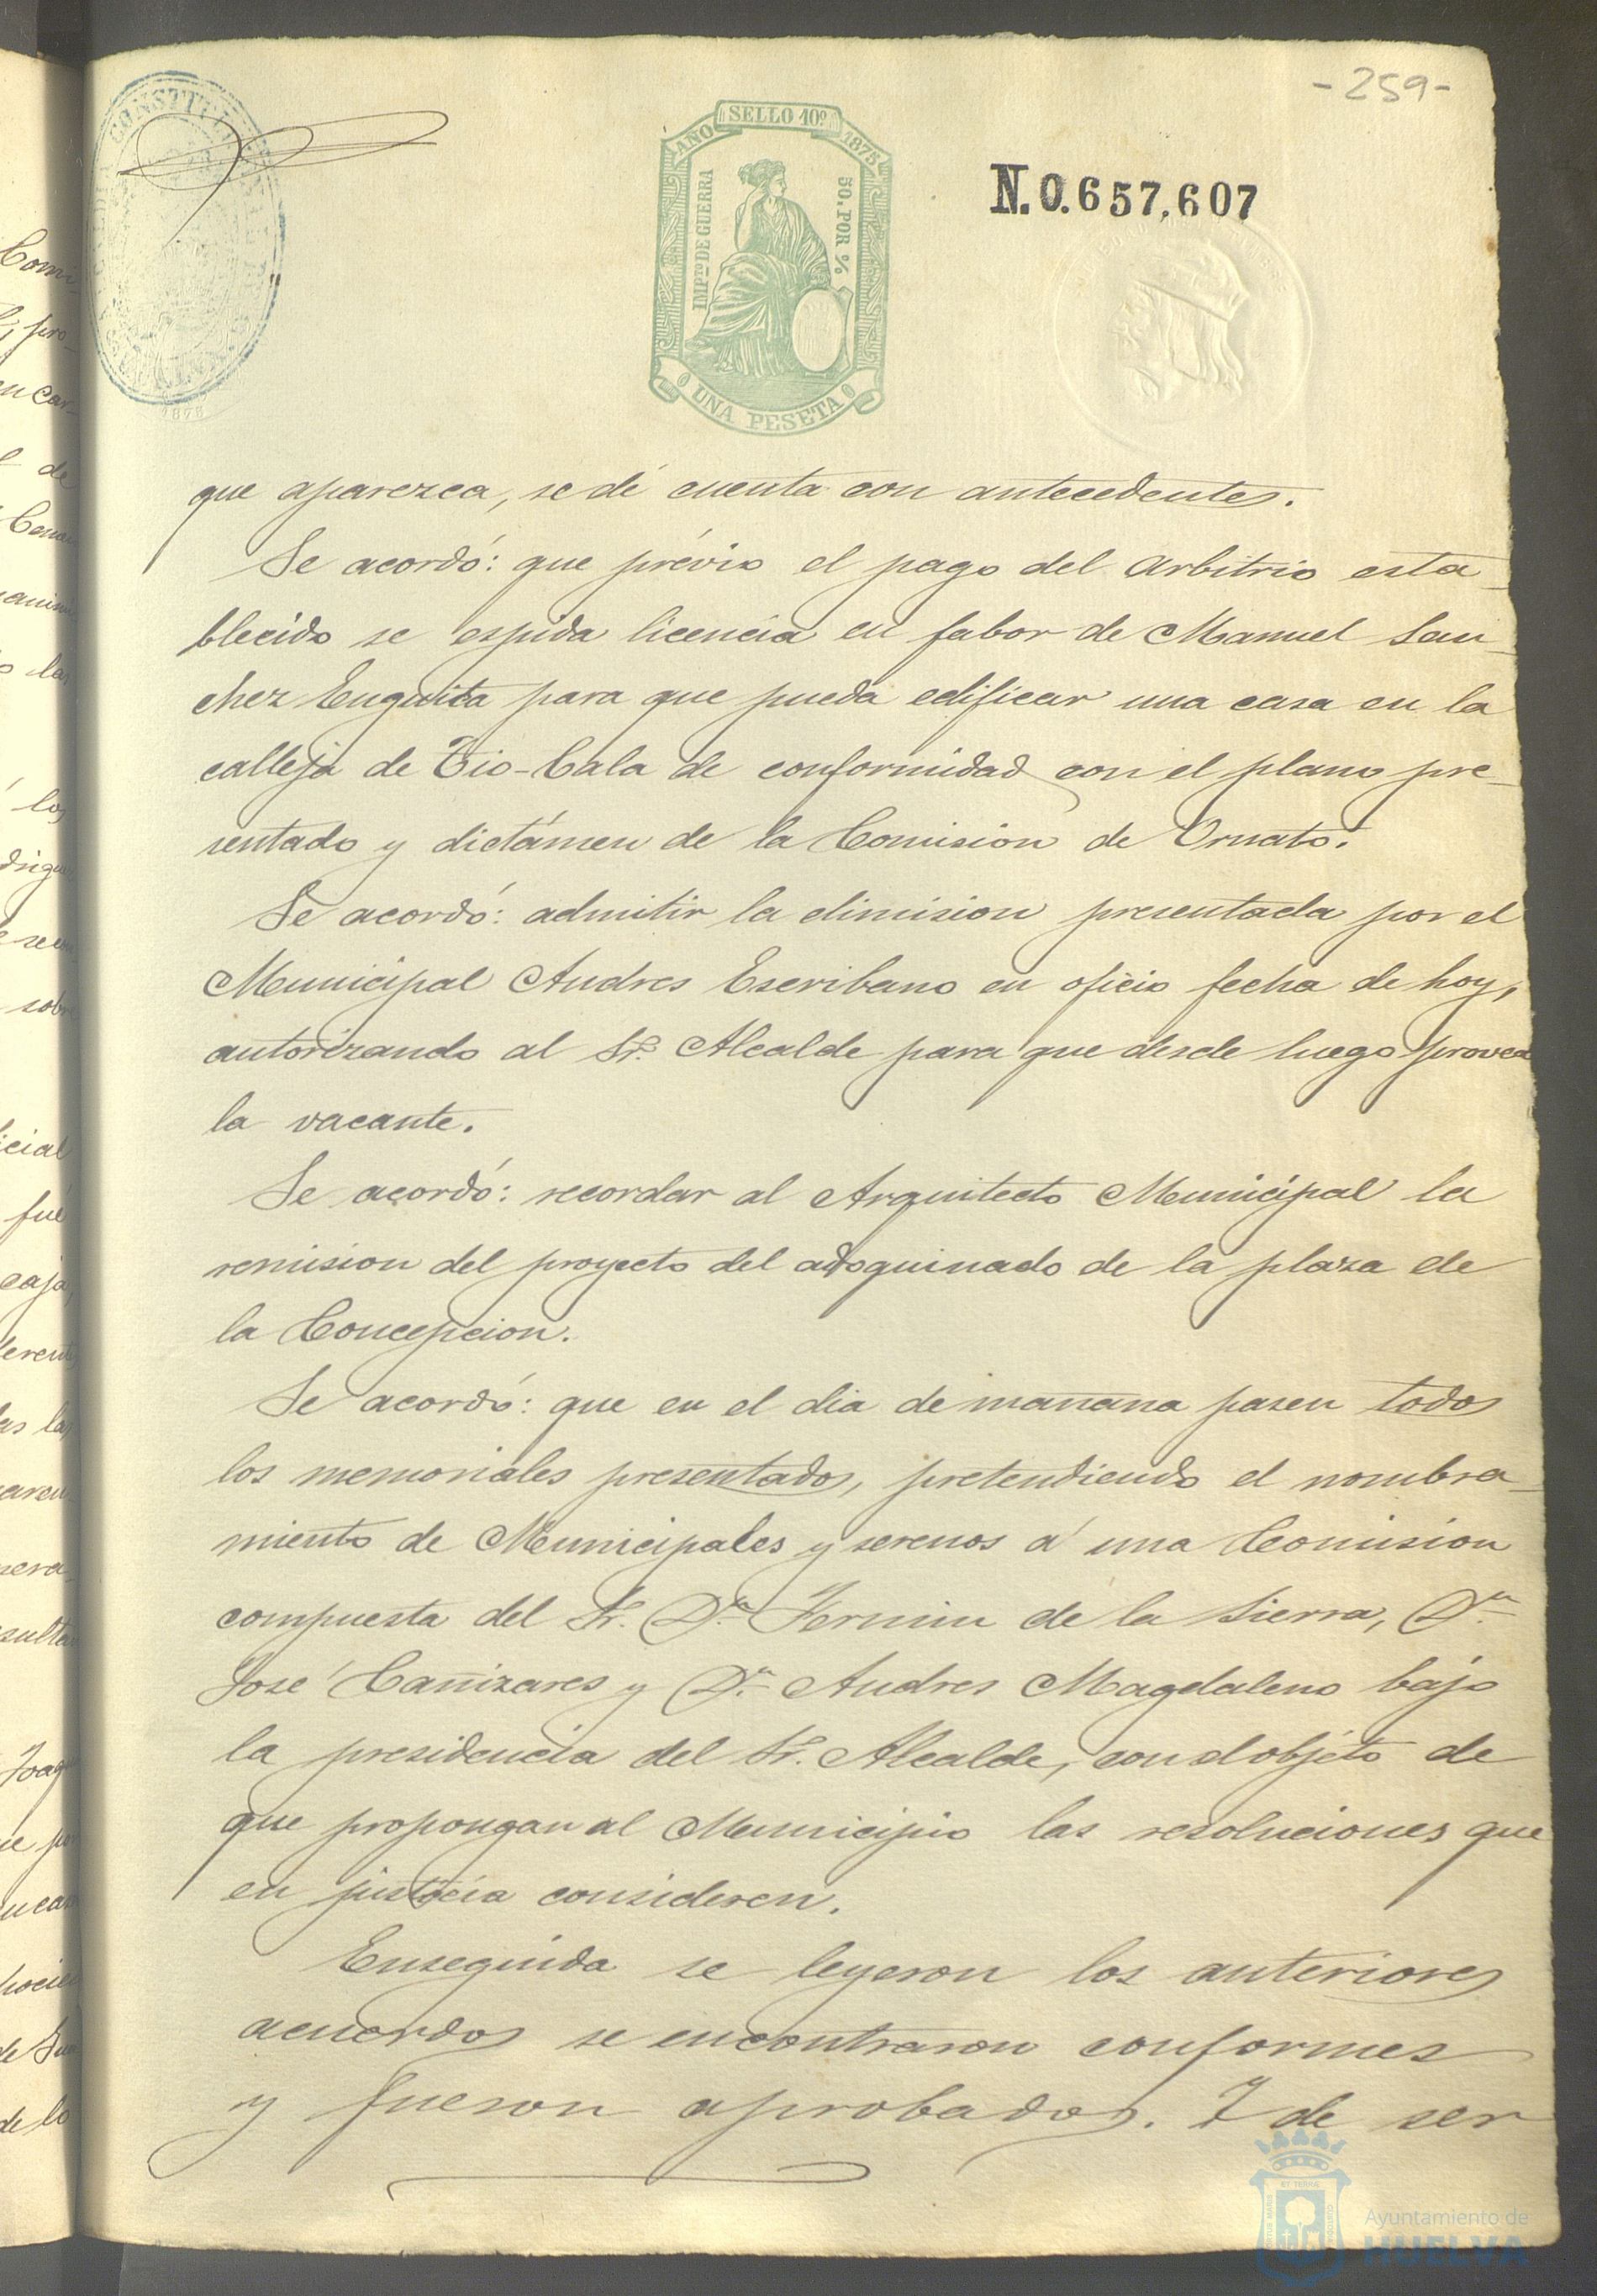 -259-
CONSTIT
AÑO SELLO 10º 1875
IMPTO DE GUERRA
50. POR %
UNA PESETA
N.0.657,607
que aparezca, se dé cuenta con antecedentes.
Se acordó: que prévio el pago del arbitrio esta-
blecido se espida licencia en fabor de Manuel San-
chez Enguita para que pueda edificar una casa en la
calleja de Tio-Cala de conformidad con el plano pre-
sentado y dictámen de la Comision de Ornato.
Se acordó: admitir la dimision presentada por el
Municipal Andres Escribano en oficio fecha de hoy,
autorizando al Sr. Alcalde para que desde luego provea
la vacante.
Se acordó: recordar al Arquitecto Municipal la
remision del proyecto del adoquinado de la plaza de
la Concepcion.
Se acordó: que en el dia de mañana pasen todos
los memoriales presentados, pretendiendo el nombra-
miento de Municipales y serenos á una Comision
compuesta del Sr. Dn. Fermin de la Sierra, Dn.
José Cañizares y Dn. Andres Magdaleno bajo
la presidencia del Sr. Alcalde, con el objeto de
que propongan al Municipio las resoluciones que
en justicia consideren.
Enseguida se leyeron los anteriores
acuerdos se encontraron conformes
y fueron aprobados. Y de ser
Ayuntamiento de
HUELVA